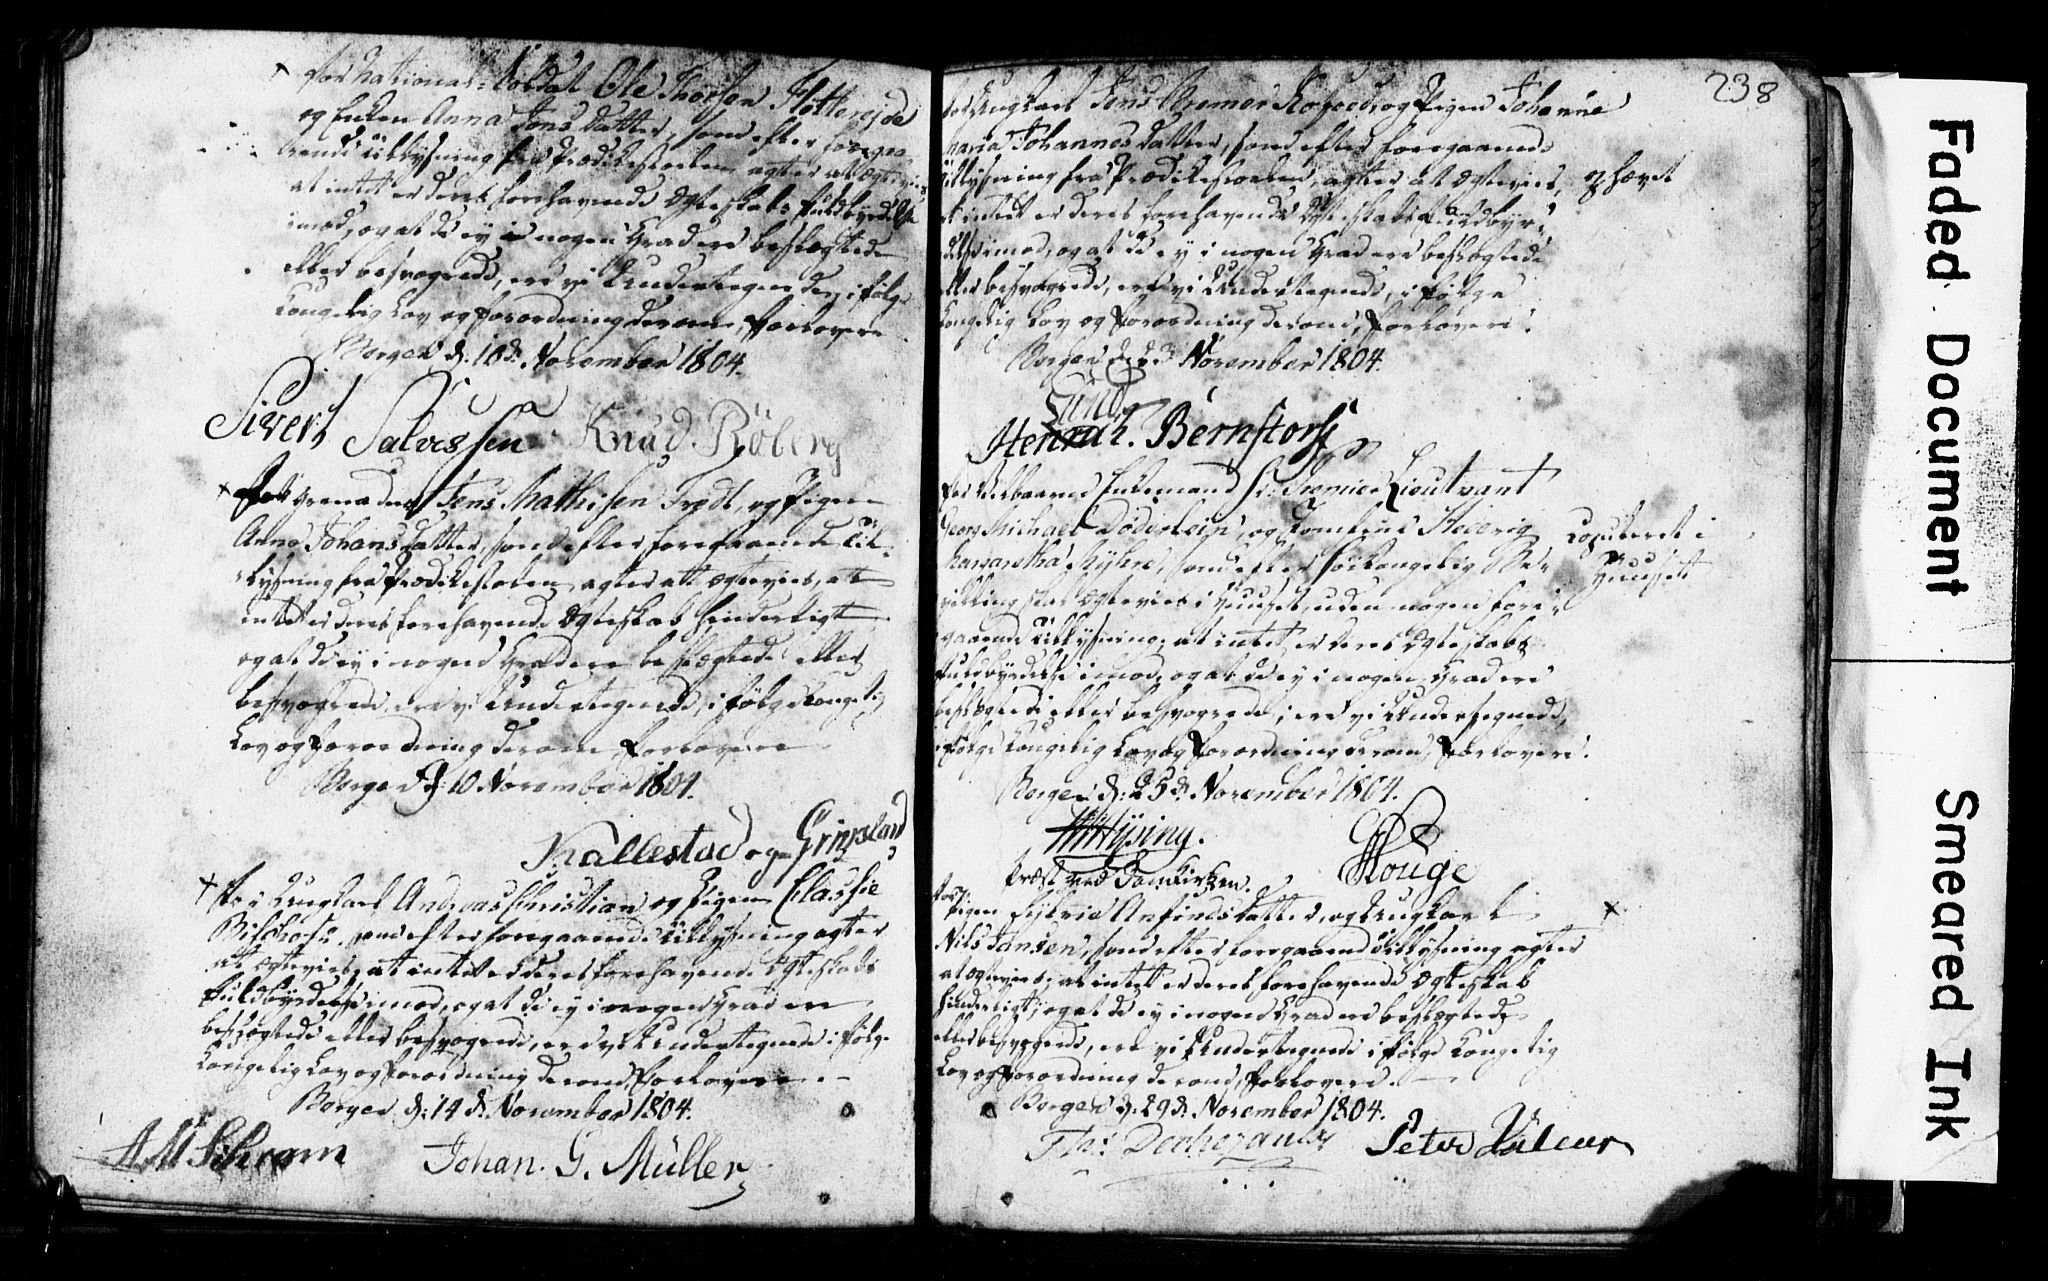 For National-Soldat Ole Thorsen Flottersjde
og Enken Anna Jons datter, som efter foregaa-
ende Tillysning fra Prædikestolen agter at ægtevies
at intet er deres forehavende Ægteskabs fuldbyrdelse
imod, og at de ey i nogen Grad ere beslægtede
eller besvogrede, ere vi Undertegnede, i følge
Kongelig Lov og Forordning derom, Forlovere
Bergen d: 10d. November 1804.
Sivert Salvessen Knud Röberg
For Grenadeer Jens Mathisen Trodt, og Pigen
Anna Johans datter, som efter foregaaende Til-
lysning fra Prædikestolen agter at ægtevies, at
intet er deres forehavende Ægteskab hinderligt
og at de ey i nogen Grad ere beslægtede eller
besvogrede, ere vi Undertegnede, i følge Kongelig
Lov og Forordning derom Forlovere
Bergen d: 10 November 1804.
Kallestad og Gripsland
For Ungkarl Andreas Christian og Pigen
som efter foregaaende Tillysning agter
at ægtevies, at intet er deres forehavende Ægteskabs
fuldbyrdelse imod, og at de ey i nogen Grad ere
beslægtede eller besvogrede, ere vi Undertegnede i følge
Kongelig Lov og Forordning derom, Forlovere.
Bergen d: 14d. November 1804.
A M Schram Johan. G. Müller
238
For Ungkarl Jens Cremer Kofoed, og Pigen Johanne
Maria Johannes datter, som efter foregaaende
Tillysning fra Prædikestolen, agter at ægtevies,
at intet er deres forehavende Ægteskabs fuldbyr-
delse imod, og at de ey i nogen Grad ere beslægtede
eller besvogrede, ere vi Undertegnede, i følge
Kongelig Lov og Forordning derom, Forlovere.
ophævet
Bergen d. 23 November 1804.
Lund
Henrich. Bernstorf
For Velbaarne Enkemand Hr: Premier Lieutnant
Georg Michael Döderlein, og Jomfrue Hedevig
Margaretha Myhre, som efter Kongelig Be-
villing skal ægtevies i Huuset, uden nogen fore-
gaaende Tillysning, at intet er deres Ægteskabs
fuldbyrdelse imod, og at de ey i nogen Grad ere
beslægtede eller besvogrede, ere vi Undertegnede,
i følge Kongelig Lov og Forordning derom, Forlovere.
Copuleret i
Huuset
Bergen d: 25d. November 1804.
Hysing.
Præst ved Domkirken. Houge
For Pigen Anfinds datter, og Ungkarl
Nils Jansen, som efter foregaaende Tillysning agter
at ægtevies; at intet er deres forehavende Ægteskab
hinderligt, og at de ey i nogen Grad ere beslægtede
eller besvogrede, ere vi Undertegnede i følge Kongelig
Lov og Forordning derom, Forlovere.
Bergen d. 29d. November 1804.
Peter
Faded Document
Smeared Ink